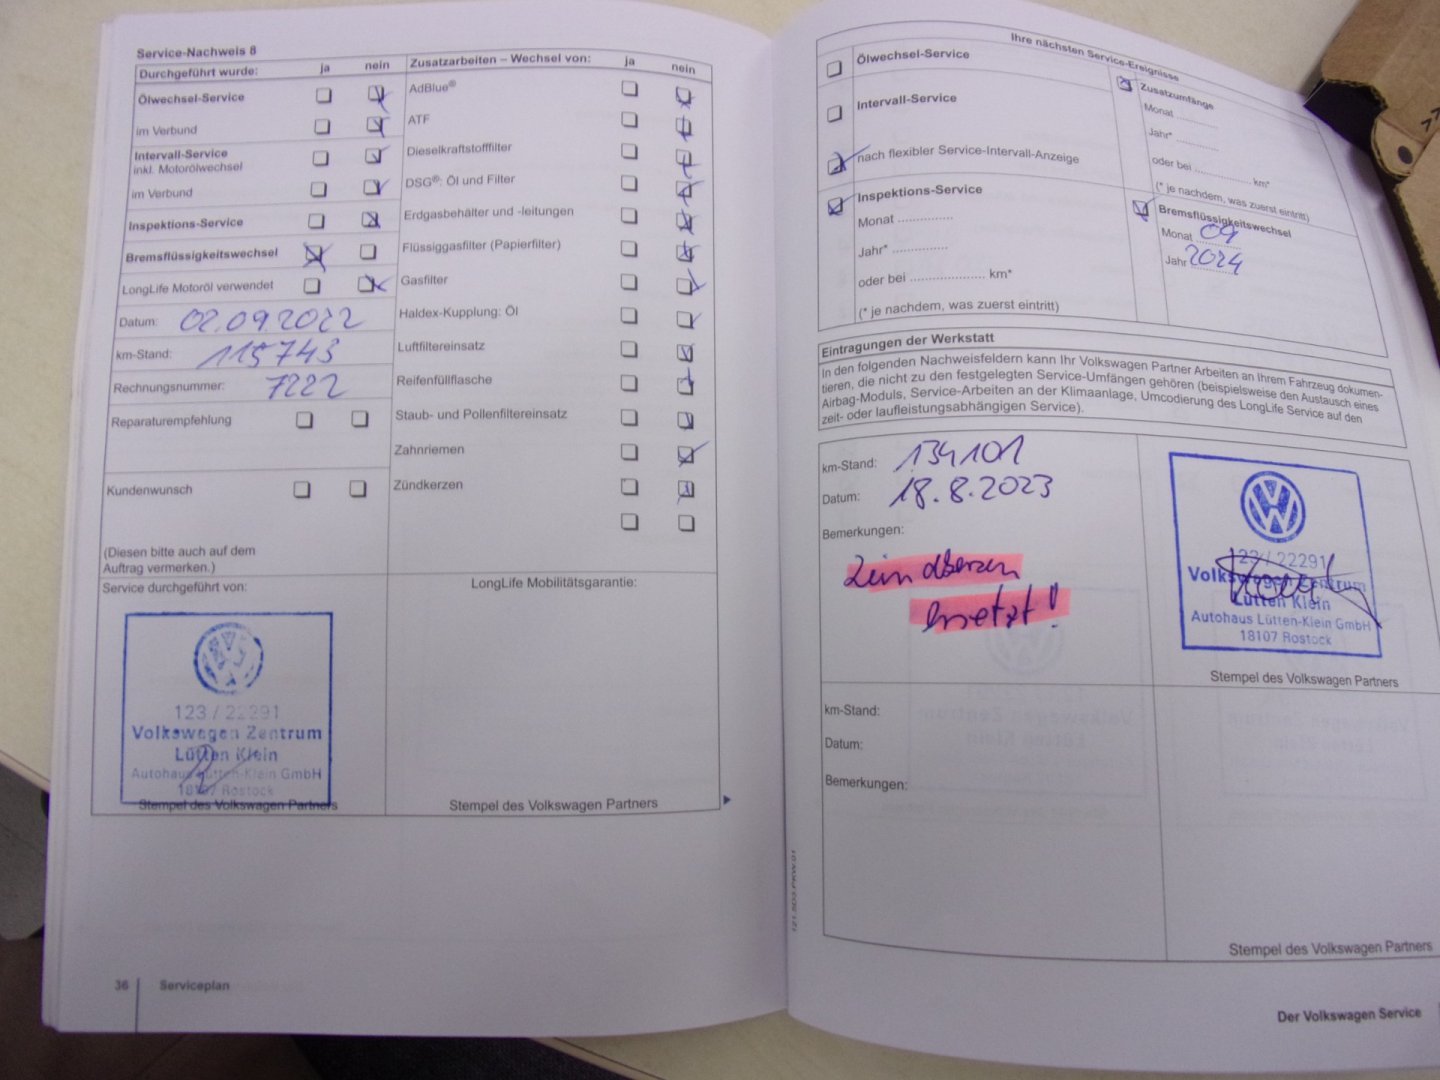 Service-Nachweis 8
Durchgeführt wurde: ja nein
Ölwechsel-Service
im Verbund
Intervall-Service
inkl. Motorölwechsel
im Verbund
Inspektions-Service
Bremsflüssigkeitswechsel
LongLife Motoröl verwendet
Datum: 02.09.2022
km-Stand: 115743
Rechnungsnummer: 7222
Reparaturempfehlung
Kundenwunsch
(Diesen bitte auch auf dem
Auftrag vermerken.)
Service durchgeführt von:
123 / 22291
Volkswagen Zentrum
Lütten Klein
Autohaus Lütten-Klein GmbH
18107 Rostock
Stempel des Volkswagen Partners
Zusatzarbeiten – Wechsel von: ja nein
AdBlue®
ATF
Dieselkraftstofffilter
DSG®: Öl und Filter
Erdgasbehälter und -leitungen
Flüssiggasfilter (Papierfilter)
Gasfilter
Haldex-Kupplung: Öl
Luftfiltereinsatz
Reifenfüllflasche
Staub- und Pollenfiltereinsatz
Zahnriemen
Zündkerzen
LongLife Mobilitätsgarantie:
Stempel des Volkswagen Partners
36 Serviceplan
Ihre nächsten Service-Ereignisse
Ölwechsel-Service
Intervall-Service
nach flexibler Service-Intervall-Anzeige
Inspektions-Service
Monat ...............
Jahr* ...............
oder bei .................... km*
(* je nachdem, was zuerst eintritt)
Zusatzumfänge
Monat ...............
Jahr* ...............
oder bei .................... km*
(* je nachdem, was zuerst eintritt)
Bremsflüssigkeitswechsel
Monat 09
Jahr 2024
Eintragungen der Werkstatt
In den folgenden Nachweisfeldern kann Ihr Volkswagen Partner Arbeiten an Ihrem Fahrzeug dokumen-
tieren, die nicht zu den festgelegten Service-Umfängen gehören (beispielsweise den Austausch eines
Airbag-Moduls, Service-Arbeiten an der Klimaanlage, Umcodierung des LongLife Service auf den
zeit- oder laufleistungsabhängigen Service).
km-Stand: 134101
Datum: 18.8.2023
Bemerkungen:
Zündkerzen
ersetzt!
123 / 22291
Volkswagen Zentrum
Lütten Klein
Autohaus Lütten-Klein GmbH
18107 Rostock
Stempel des Volkswagen Partners
km-Stand:
Datum:
Bemerkungen:
Stempel des Volkswagen Partners
121.5D3.PKW.01
Der Volkswagen Service